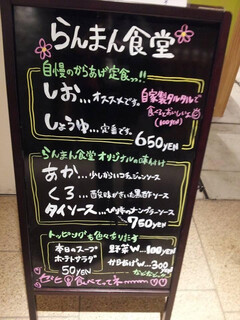 らんまん食堂
自慢のからあげ定食っっ!!
しお…オススメです。
自家製タルタルで
食べてもおいしいよ
(100YEN)
しょうゆ…定番です。
650YEN
らんまん食堂オリジナルの味付け
あか…少しからいコチュジャンソース
くろ…酸味がきいた黒酢ソース
タイソース…ナンプラーソース
750YEN
トッピングも色々あります
本日のスープ
ポテトサラダ
50YEN
野菜W…100YEN
からあげW…300YEN
などなど
食べてってネー